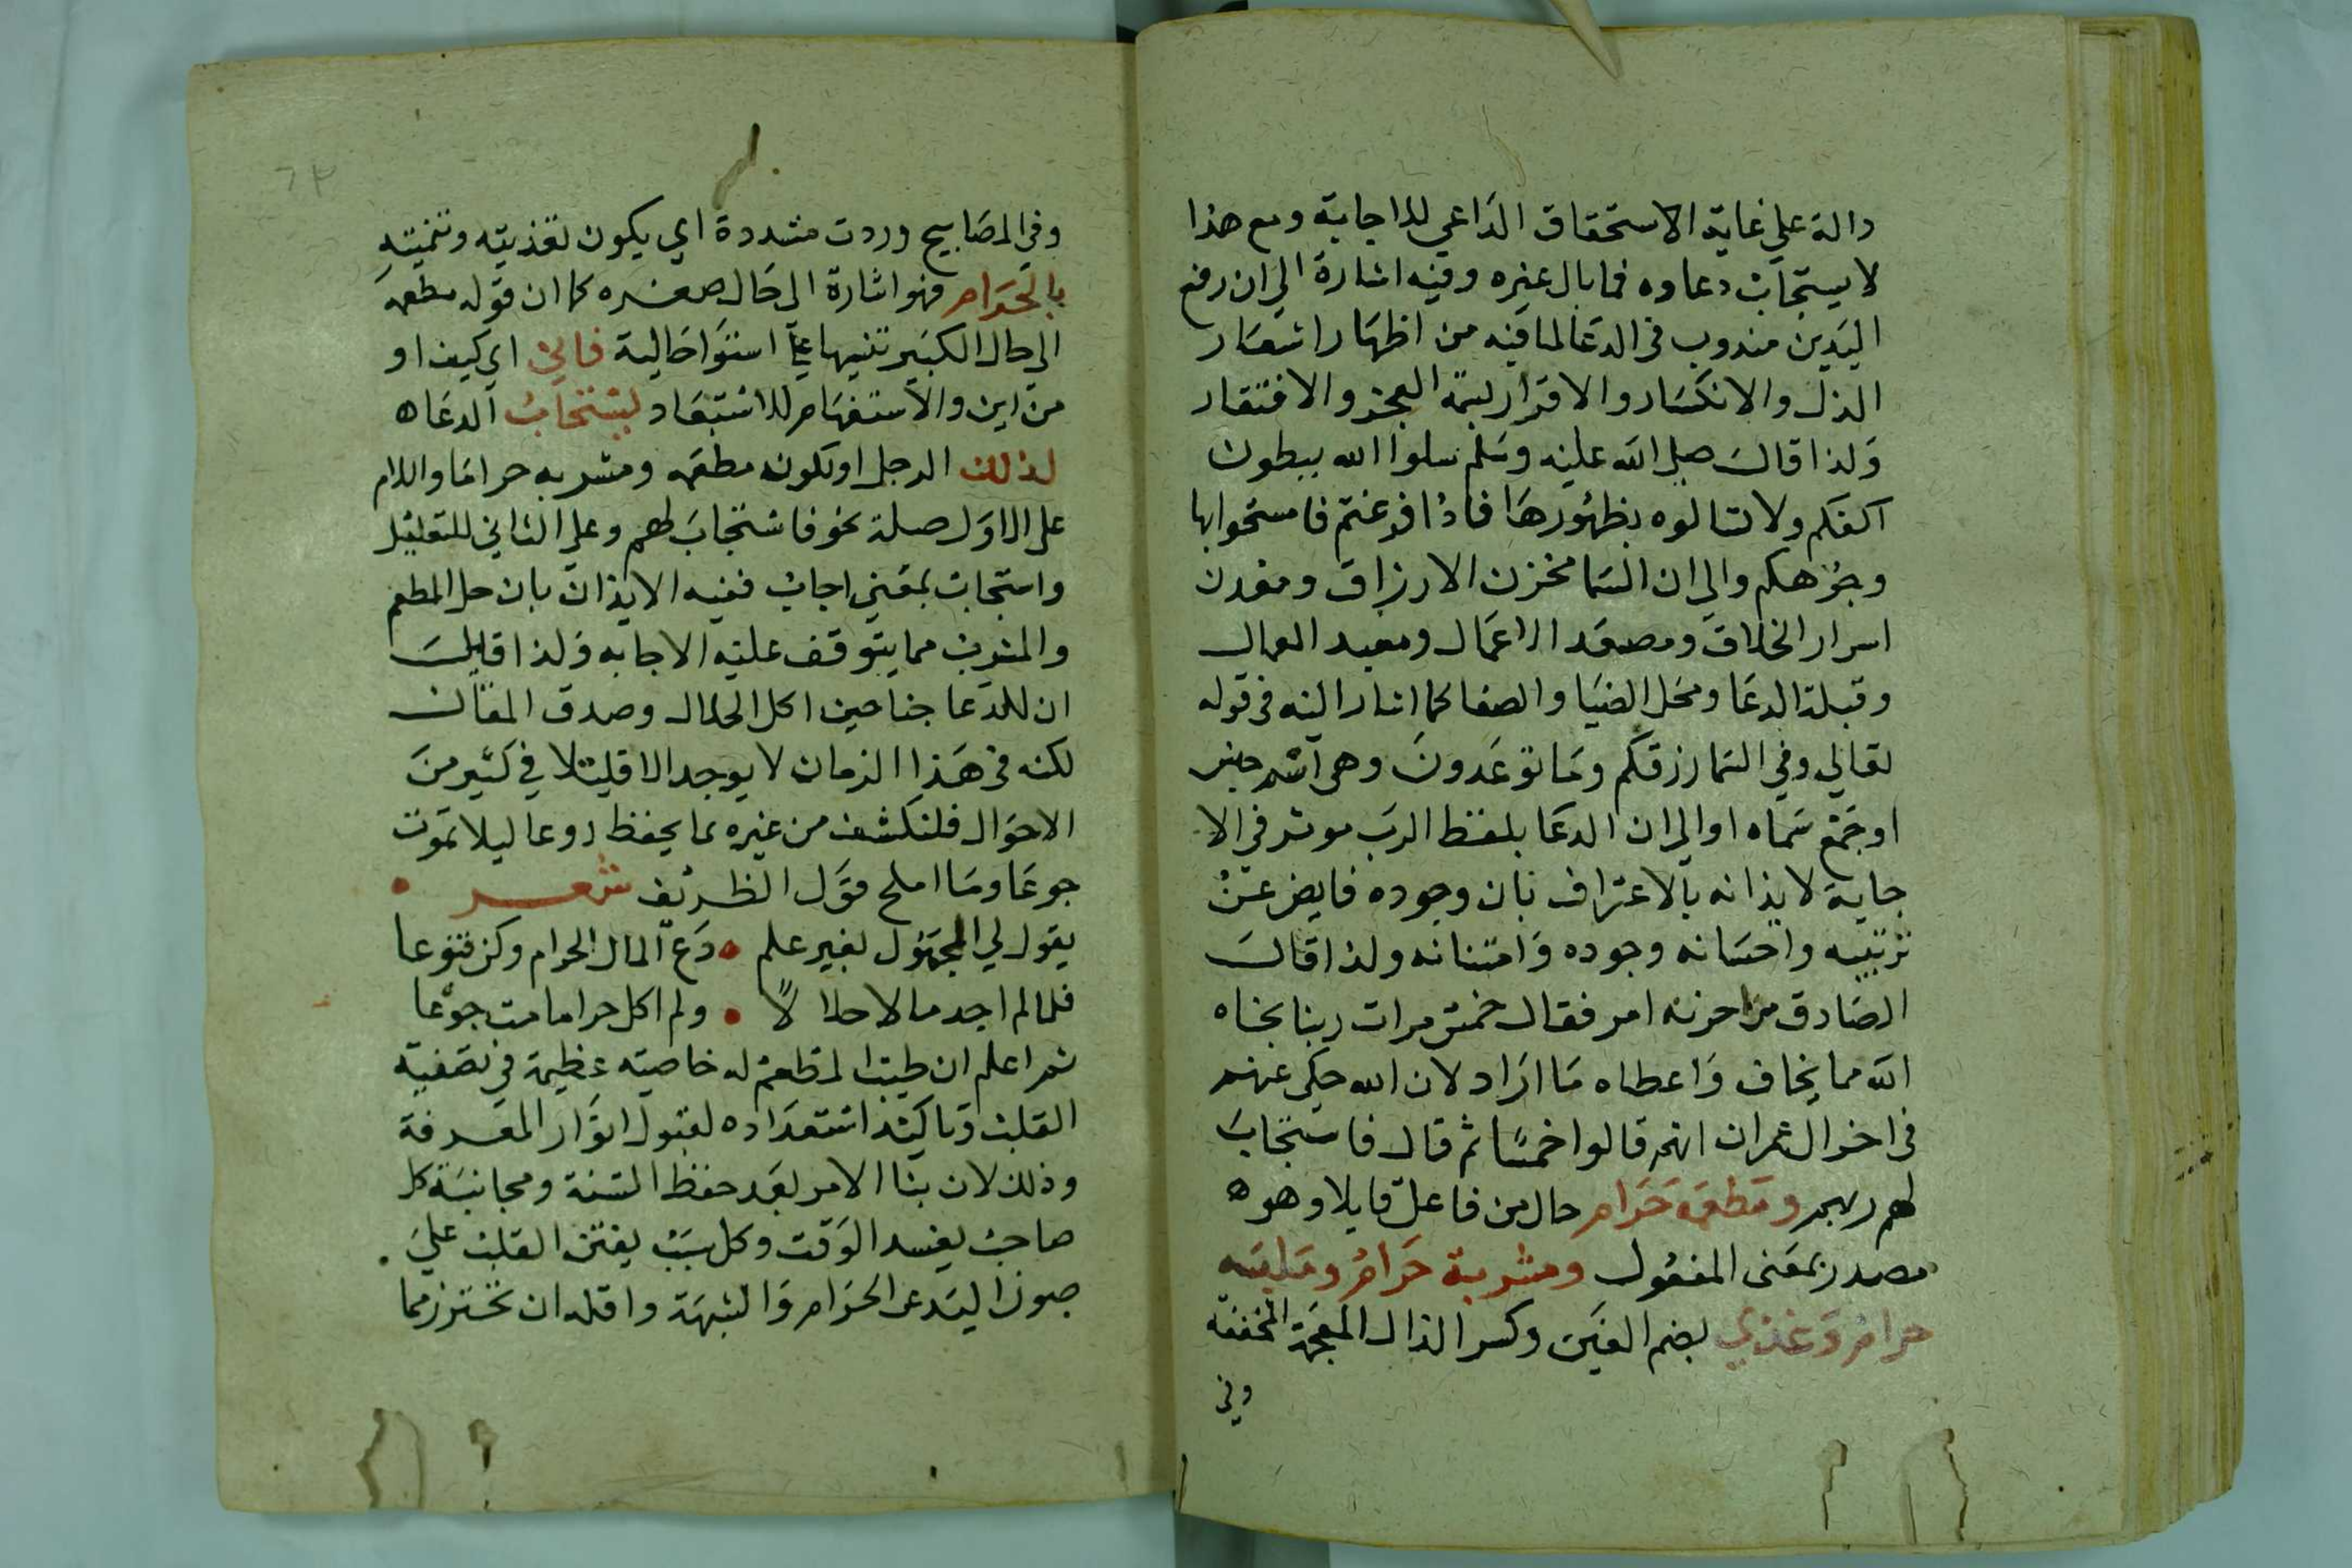 دالة علي غاية الاستحقاق الداعي للاجابة ومع هذا
لا يستجاب دعاوه فما بال غيره وفيه اشارة الي ان رفع
اليدين مندوب في الدعا لما فيه من اظهار اشعار
الذل والانكسار والاقرار بسمة العجز والافتقار
ولذا قال صلي الله عليه وسلم سلوا الله ببطون
اكفكم ولا تسالوه بظهورها فاذا فرغتم فامسحوا بها
وجوهكم والي ان السما مخزن الارزاق ومعدن
اسرار الخلاق ومصعد الاعمال ومعبد العمال
وقبلة الدعا ومحل الضيا والصفا كما اشار اليه في قوله
تعالي وفي السما رزقكم وما توعدون وهي اسم جنس
او جمع سماه او الي ان الدعا بلفظ الرب موثر في الا
جابة لايذانه بالاعتراف بان وجوده فايض عن
تربيته واحسانه وجوده وامتنانه ولذا قال
الصادق من احزنه امر فقال خمس مرات ربنا نجاه
الله مما يخاف واعطاه ما اراد لان الله حكي عنهم
في اخر ال عمران انهم قالوا خمسا ثم قال فاستجاب
لهم ربهم ومطعمه حرام حال من فاعل قايلا وهو
مصدر بمعني المفعول ومشربه حرام وملبسه
حرام وغذي بضم الغين وكسر الذال المعجمة المخففة
وفي
٦٣
وفي المصابيح وردت مشددة اي يكون تغذيته وتنميته
بالحرام فهو اشارة الي حال صغره كما ان قوله مطعمه
الي حال الكبير تنبيها علي استوا حاليه فاني اي كيف او
من اين والاستفهام للاستبعاد يستجاب الدعا
لذلك الرجل او لكون مطعمه ومشربه حراما واللام
علي الاول صلة نحو فاستجاب لهم وعلي الثاني للتعليل
واستجاب بمعني اجاب ففيه الايذان بان حل المطعم
والمشرب مما يتوقف عليه الاجابه ولذا قيل
ان للدعا جناحين اكل الحلال وصدق المقال
لكنه في هذا الزمان لا يوجد الا قليلا في كثير من
الاحوال فلنكشف من غيره بما يحفظ روعا ليلا تموت
جوعا وما املح قول الظريف شعر
يقول لي الجهول بغير علم • دع المال الحرام وكن قنوعا
فلما لم اجد مالا حلا لا • ولم اكل حراما مت جوعا
ثم اعلم ان طيب المطعم له خاصيه عظيمة في تصفية
القلب وتاكيد استعداده لقبول انوار المعرفة
وذلك لان بنا الامر بعد حفظ السنة ومجانبة كل
صاحب يفسد الوقت وكل سبب يفتن القلب علي
صون اليد عن الحرام والشبهة واقله ان تحترز مما